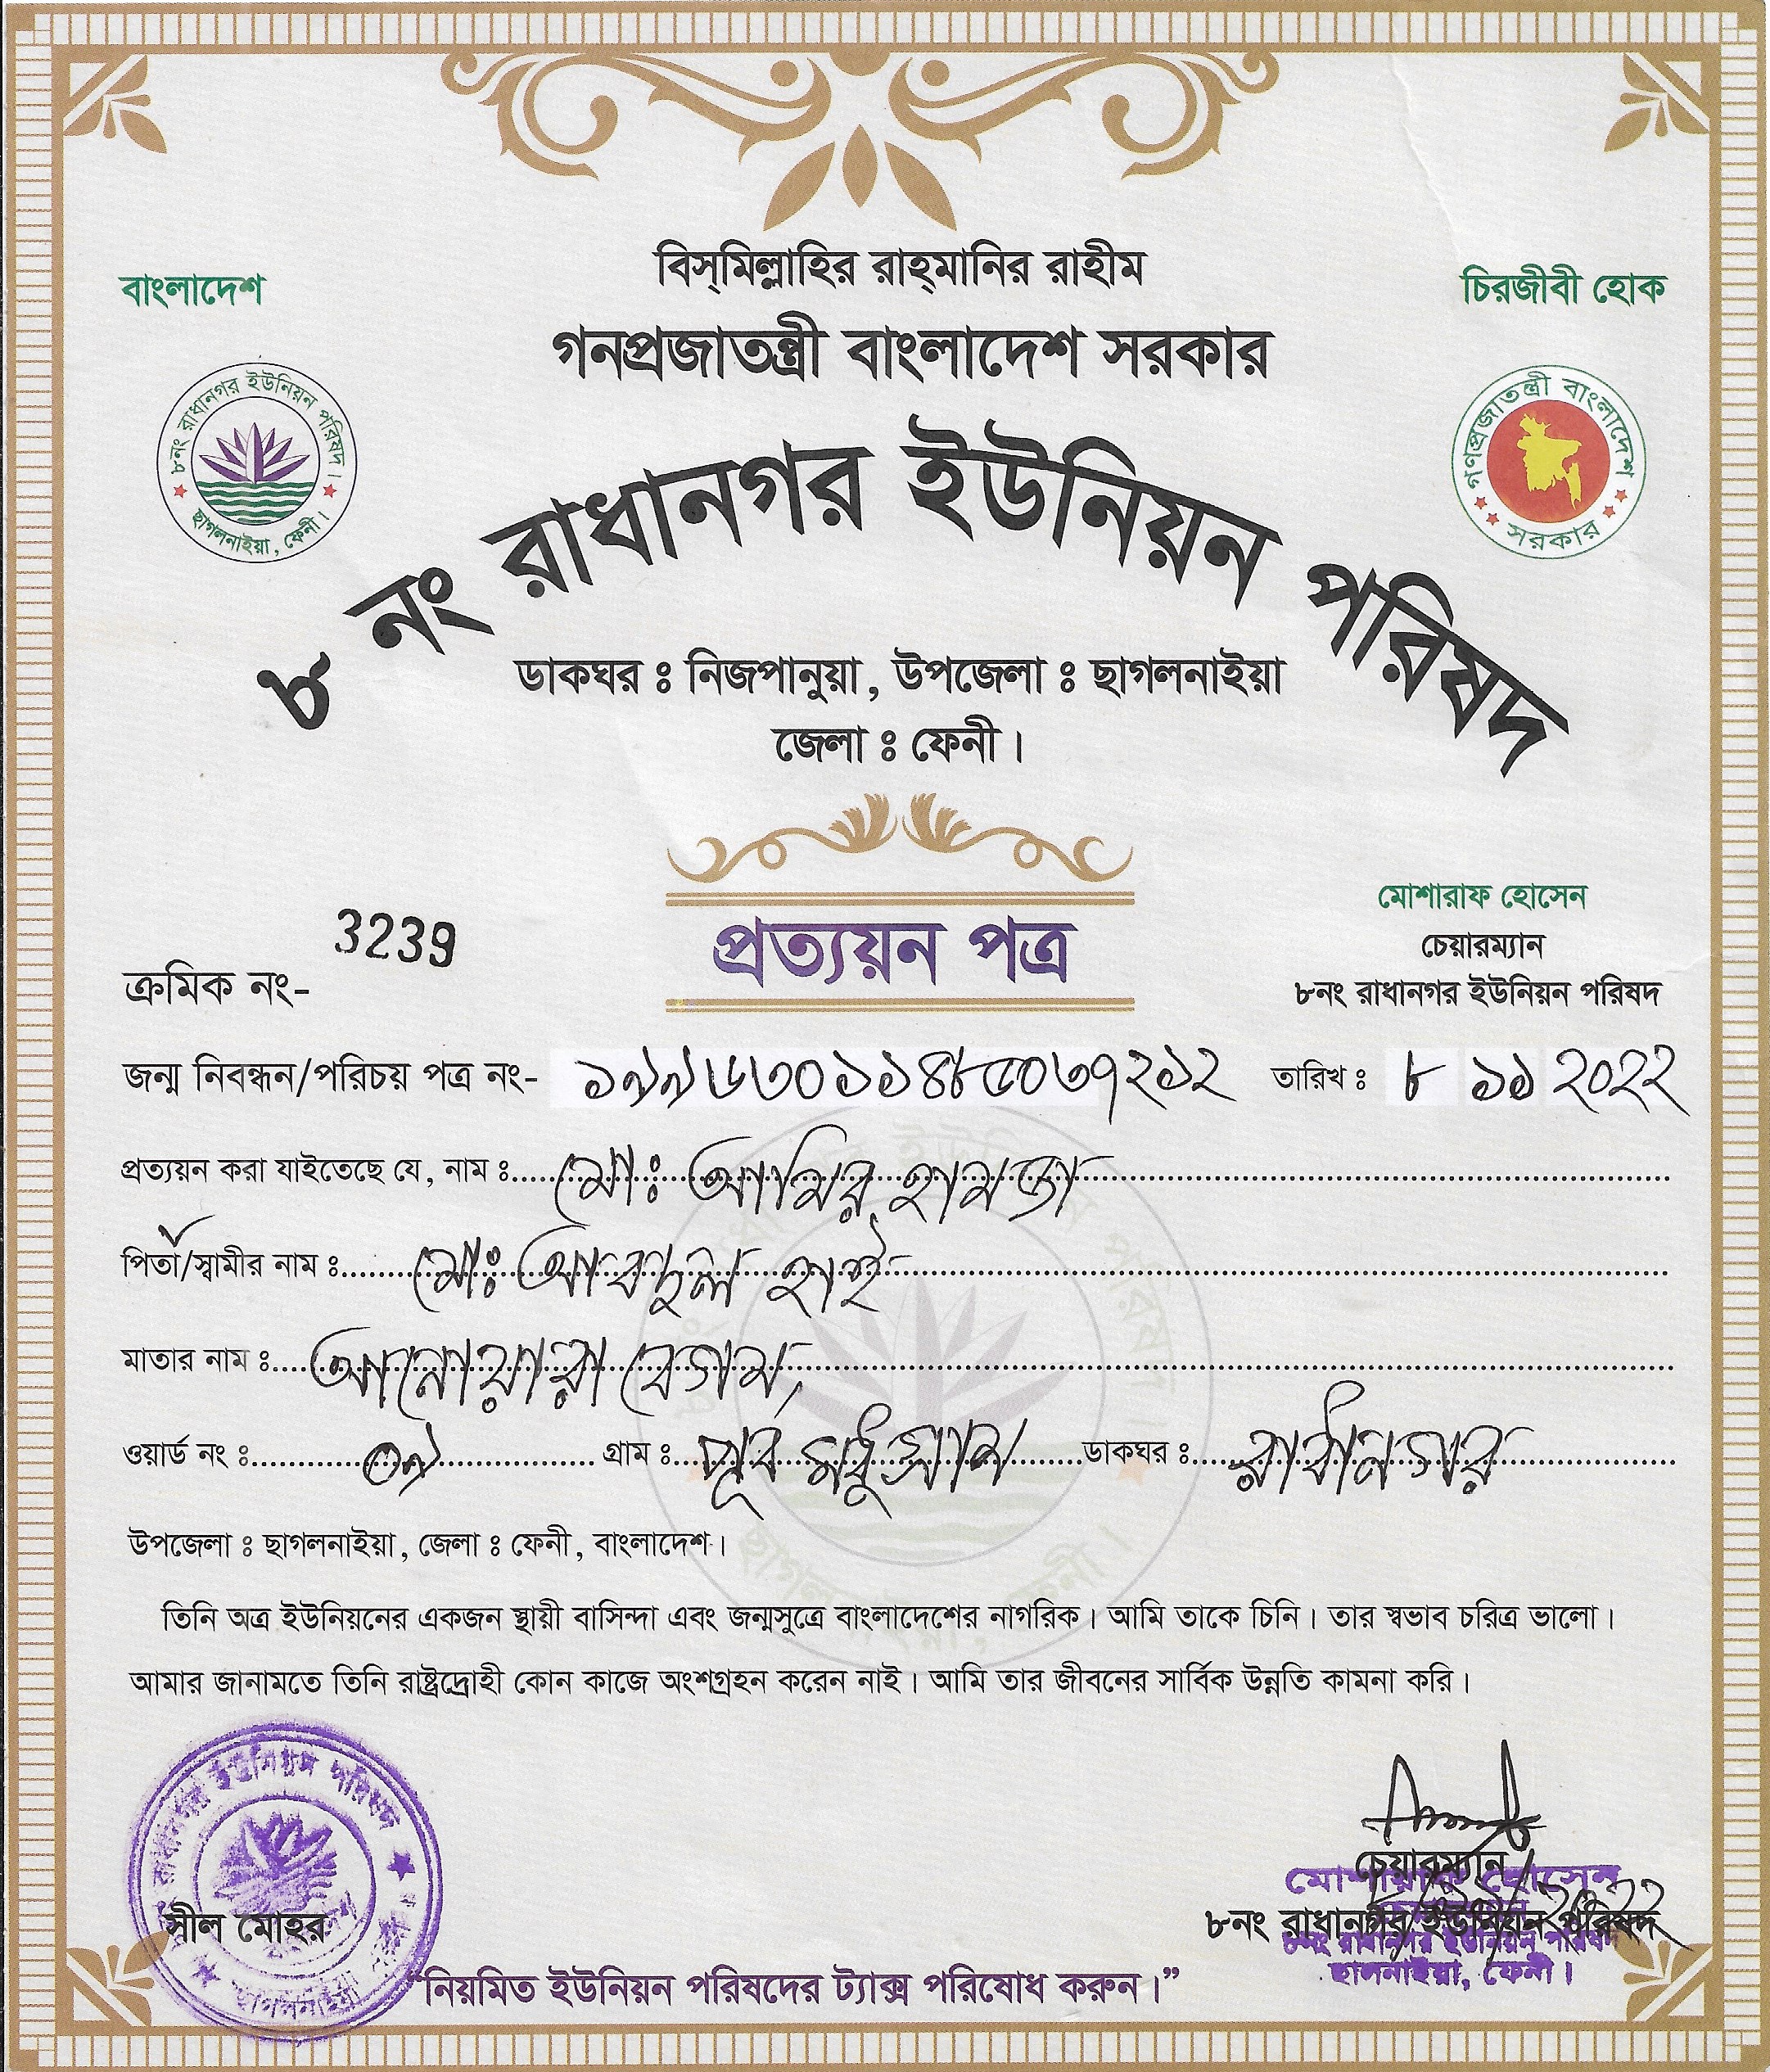 বিস্‌মিল্লাহির রাহ্‌মানির রাহীম
বাংলাদেশ
চিরজীবী হোক
গনপ্রজাতন্ত্রী বাংলাদেশ সরকার
৮নং রাধানগর ইউনিয়ন পরিষদ।
ছাগলনাইয়া, ফেনী।
গণপ্রজাতন্ত্রী বাংলাদেশ
সরকার
৮ নং রাধানগর ইউনিয়ন পরিষদ
ডাকঘর ঃ নিজপানুয়া, উপজেলা ঃ ছাগলনাইয়া
জেলা ঃ ফেনী।
প্রত্যয়ন পত্র
মোশারাফ হোসেন
চেয়ারম্যান
৮নং রাধানগর ইউনিয়ন পরিষদ
ক্রমিক নং- 3239
জন্ম নিবন্ধন/পরিচয় পত্র নং- ১৯৯৬৩০১১৪৮৫০৩৭২১২ তারিখ ঃ ৮ ১১ ২০২২
প্রত্যয়ন করা যাইতেছে যে, নাম ঃ মোঃ আমির হামজা
পিতা/স্বামীর নাম ঃ মোঃ আবদুল হাই
মাতার নাম ঃ আনোয়ারা বেগম,
ওয়ার্ড নং ঃ ০৯ গ্রাম ঃ পূর্ব মধুগ্রাম ডাকঘর ঃ রাধানগর
উপজেলা ঃ ছাগলনাইয়া, জেলা ঃ ফেনী, বাংলাদেশ।
তিনি অত্র ইউনিয়নের একজন স্থায়ী বাসিন্দা এবং জন্মসুত্রে বাংলাদেশের নাগরিক। আমি তাকে চিনি। তার স্বভাব চরিত্র ভালো।
আমার জানামতে তিনি রাষ্ট্রদ্রোহী কোন কাজে অংশগ্রহন করেন নাই। আমি তার জীবনের সার্বিক উন্নতি কামনা করি।
রাধানগর ইউনিয়ন পরিষদ
ছাগলনাইয়া
সীল মোহর
চেয়ারম্যান
মোশারাফ হোসেন
৮নং রাধানগর ইউনিয়ন পরিষদ
৮নং রাধানগর ইউনিয়ন পরিষদ
ছাগলনাইয়া, ফেনী।
“নিয়মিত ইউনিয়ন পরিষদের ট্যাক্স পরিষোধ করুন।”